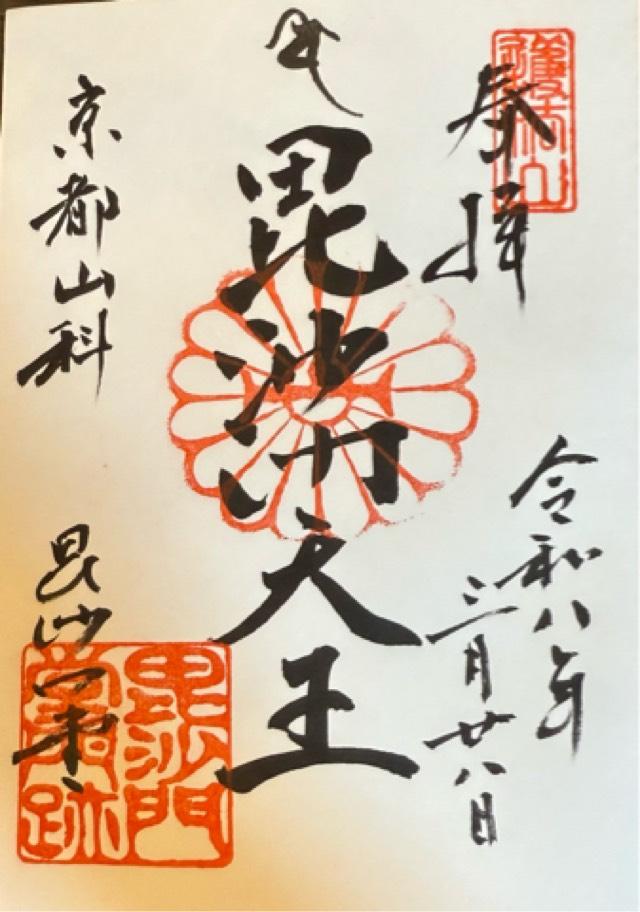 奉拝
護法山
令和八年
三月廿八日
毘沙門天王
京都山科
毘沙門堂
毘沙門堂門跡